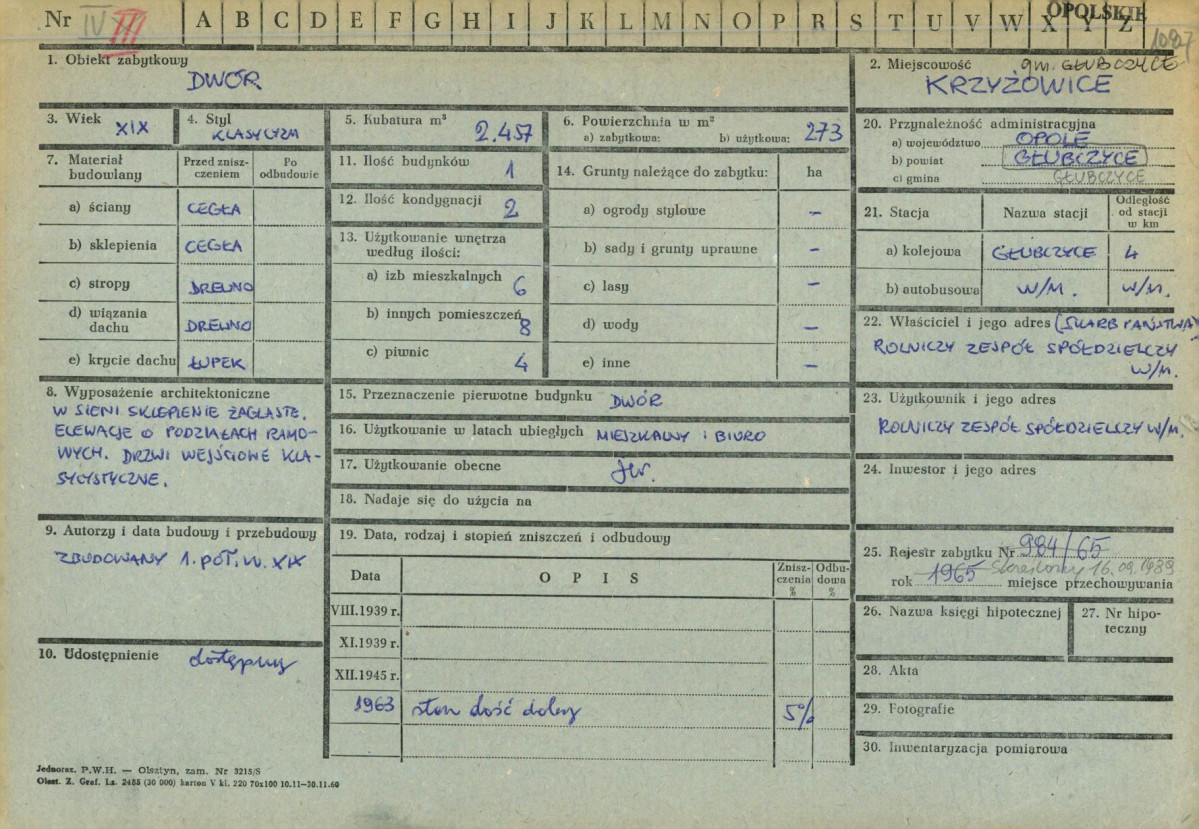 Nr IV III A B C D E F G H I J K L M N O P R S T U V W X Y Z OPOLSKIE
1. Obiekt zabytkowy
DWÓR
2. Miejscowość gm. GŁUBCZYCE
KRZYŻOWICE
3. Wiek XIX
4. Styl KLASYCYZM
5. Kubatura m³ 2.457
6. Powierzchnia w m²
a) zabytkowa: b) użytkowa: 273
7. Materiał budowlany
Przed zniszczeniem
Po odbudowie
a) ściany CEGŁA
b) sklepienia CEGŁA
c) stropy DREWNO
d) wiązania dachu DREWNO
e) krycie dachu ŁUPEK
8. Wyposażenie architektoniczne
W SIENI SKLEPIENIE ŻAGLASTE.
ELEWACJE O PODZIAŁACH RAMO-
WYCH. DRZWI WEJŚCIOWE KLA-
SYCYSTYCZNE.
9. Autorzy i data budowy i przebudowy
ZBUDOWANY 1. POŁ. W. XIX
10. Udostępnienie dostępny
11. Ilość budynków 1
12. Ilość kondygnacji 2
13. Użytkowanie wnętrza
według ilości:
a) izb mieszkalnych 6
b) innych pomieszczeń 8
c) piwnic 4
14. Grunty należące do zabytku: ha
a) ogrody stylowe –
b) sady i grunty uprawne –
c) lasy –
d) wody –
e) inne –
15. Przeznaczenie pierwotne budynku DWÓR
16. Użytkowanie w latach ubiegłych MIESZKALNY I BIURO
17. Użytkowanie obecne jw.
18. Nadaje się do użycia na
19. Data, rodzaj i stopień zniszczeń i odbudowy
Data OPIS Zniszczenia % Odbudowa %
VIII.1939 r.
XI.1939 r.
XII.1945 r.
1963 stan dość dobry 5%
20. Przynależność administracyjna
a) województwo OPOLE
b) powiat GŁUBCZYCE
c) gmina GŁUBCZYCE
21. Stacja Nazwa stacji Odległość od stacji w km
a) kolejowa GŁUBCZYCE 4
b) autobusowa W/M. W/M.
22. Właściciel i jego adres (SKARB PAŃSTWA)
ROLNICZY ZESPÓŁ SPÓŁDZIELCZY
W/M.
23. Użytkownik i jego adres
ROLNICZY ZESPÓŁ SPÓŁDZIELCZY W/M.
24. Inwestor i jego adres
25. Rejestr zabytku Nr 984/65
Skreślony 16.09.1989
rok 1965 miejsce przechowywania
26. Nazwa księgi hipotecznej
27. Nr hipoteczny
28. Akta
29. Fotografie
30. Inwentaryzacja pomiarowa
Jednoraz. P.W.H. — Olsztyn, zam. Nr 3215/S
Olszt. Z. Graf. Lz. 2485 (30 000) karton V kl. 220 70x100 10.11—30.11.60